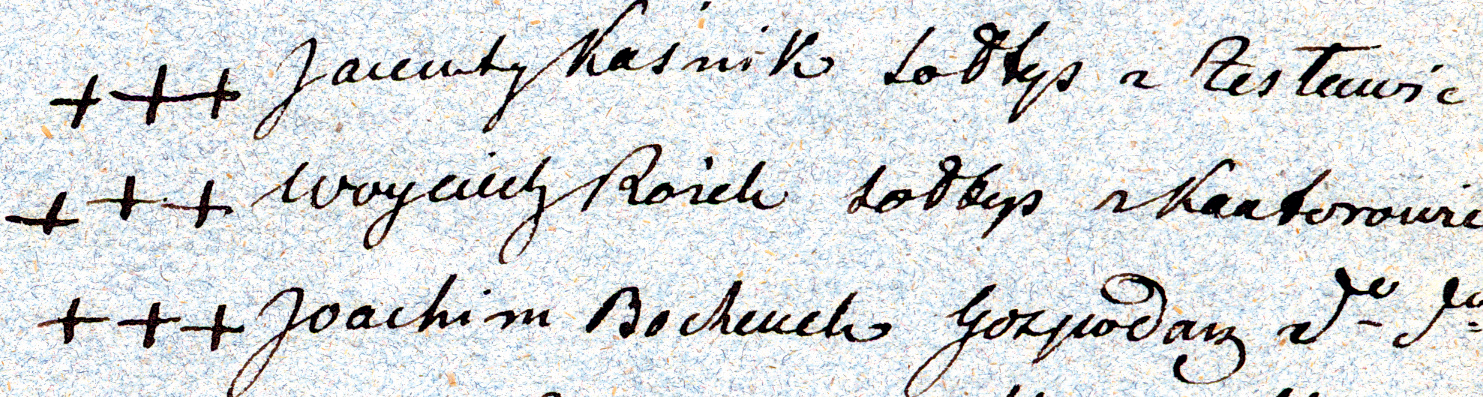 +++ Jacenty Kaśnik sołtys z Zestawic
+++ Woyciech Rosiek sołtys z Kantorowic
+++ Joachim Bochenek Gospodarz z